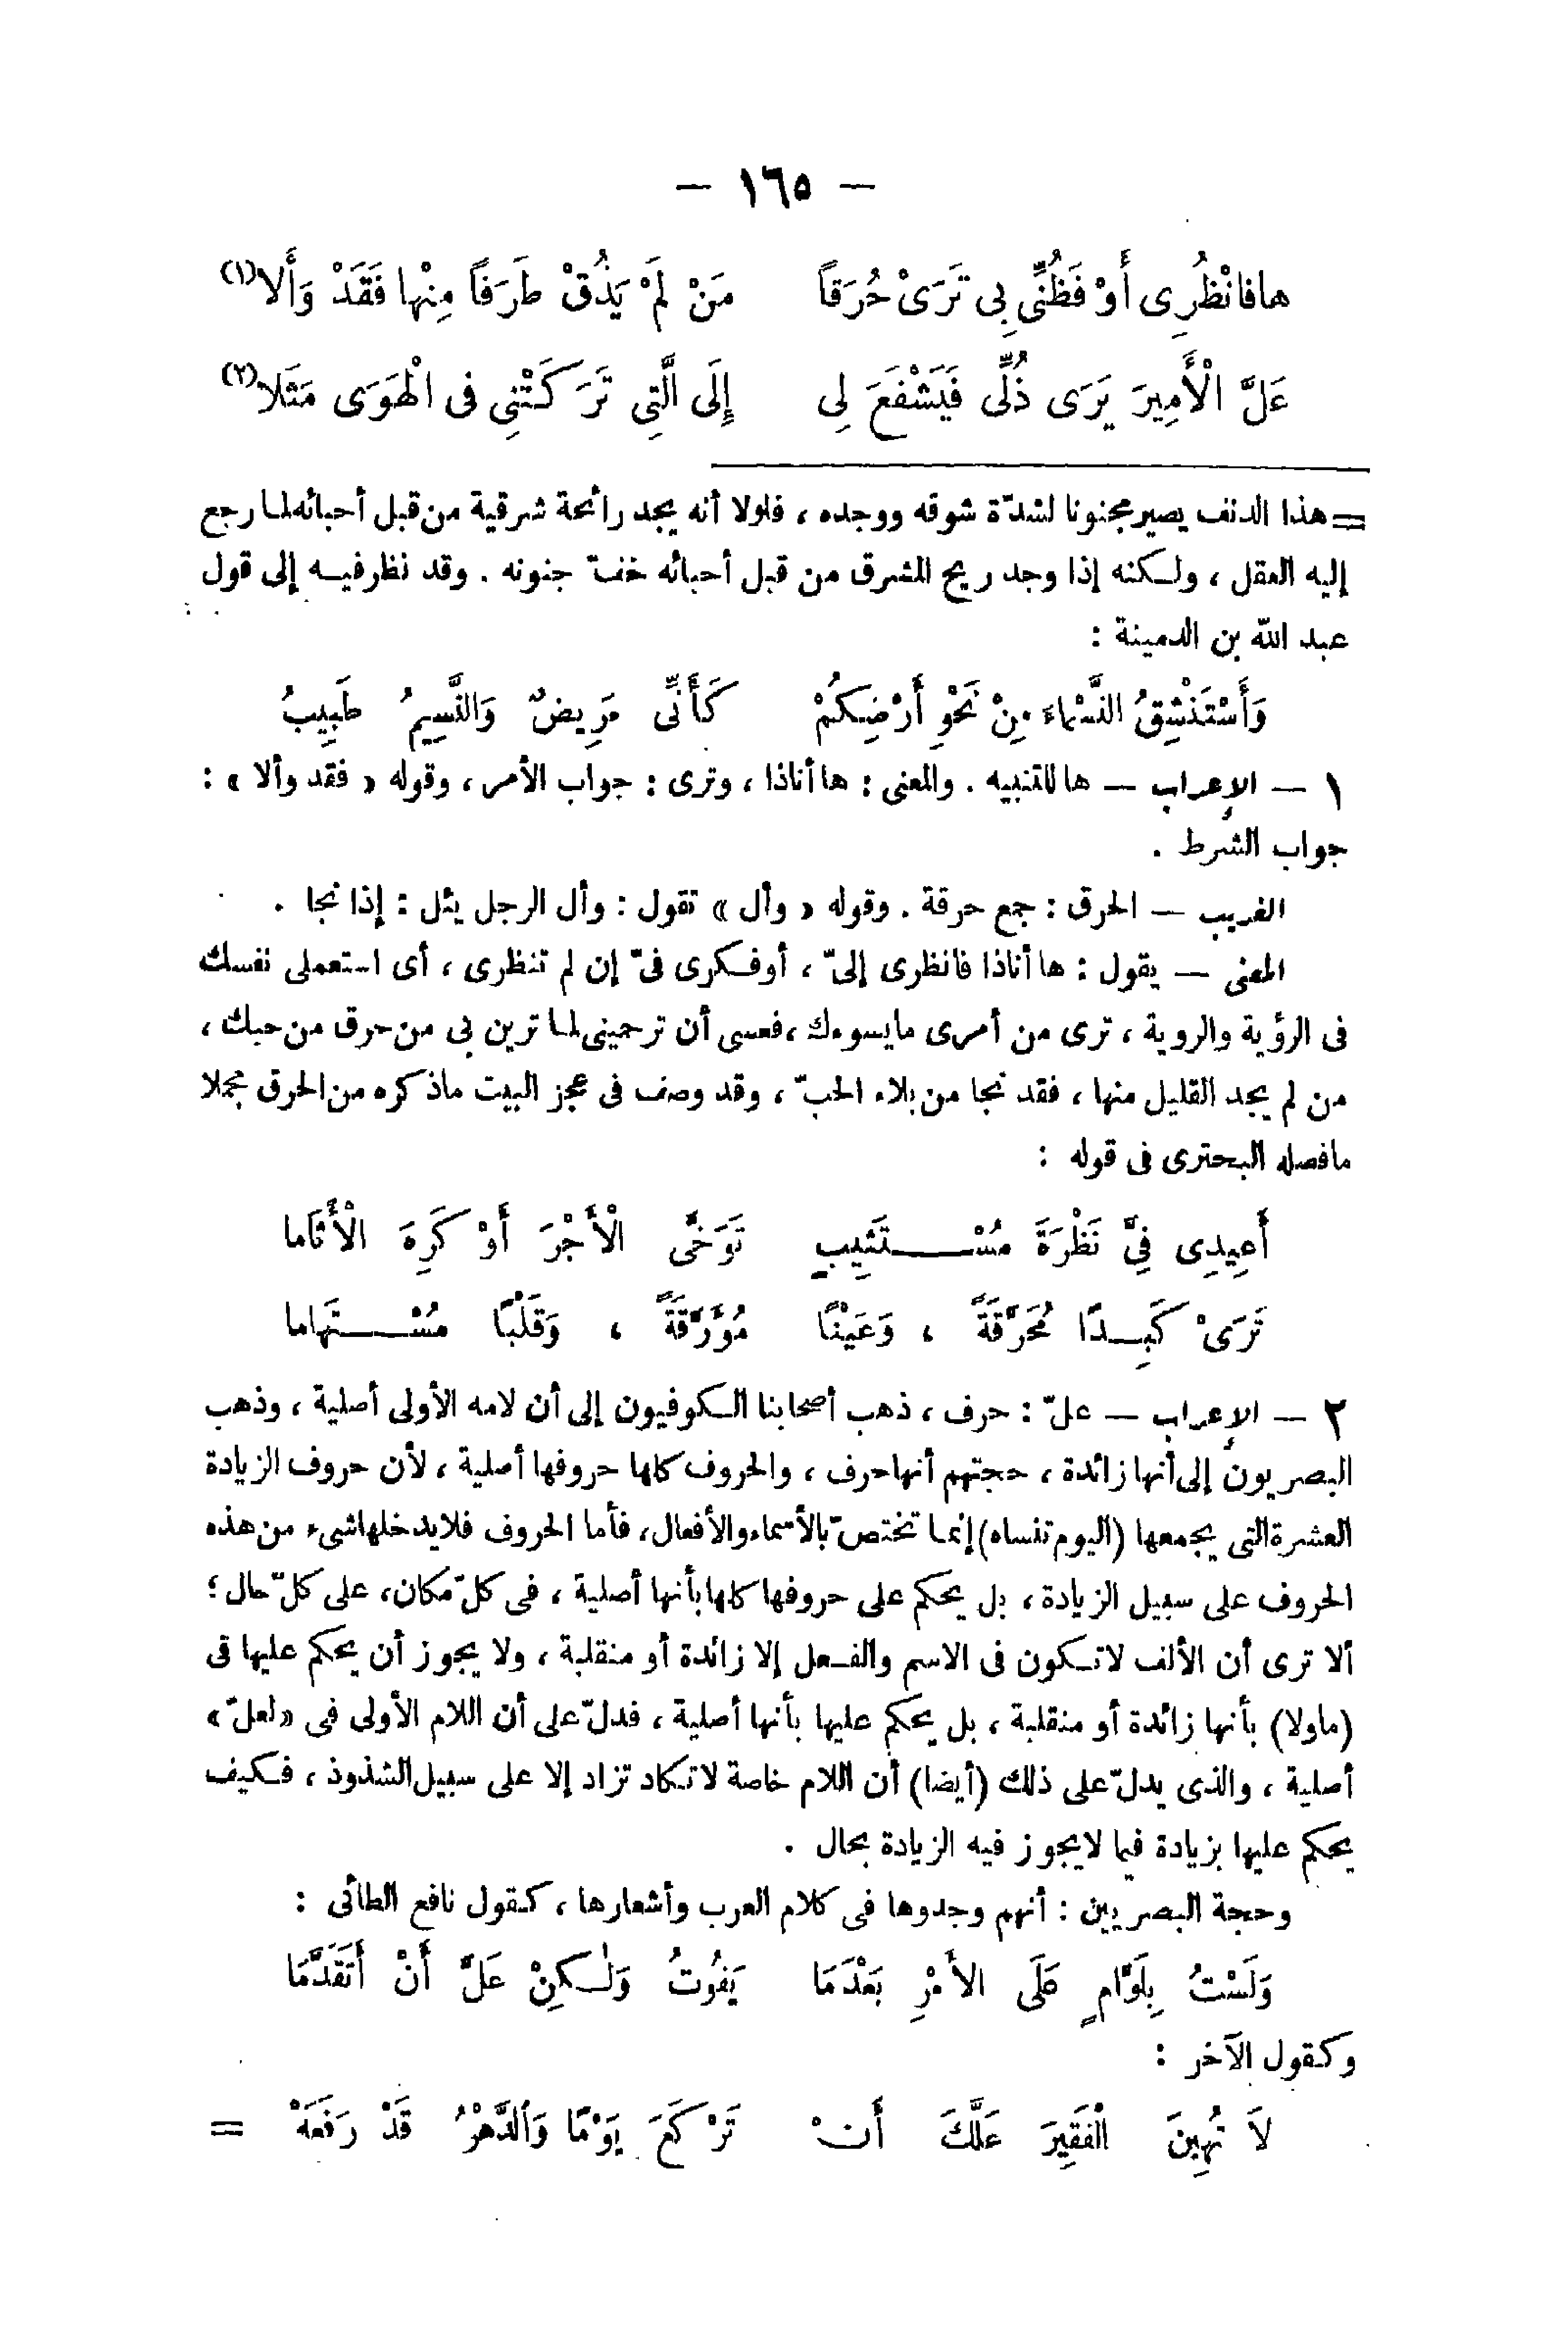 — ١٦٥ —
هافانْظُرِى أَوْ فَظُنِّى بِى تَرَىْ حُرَقاً مَنْ لَمْ يَذُقْ طَرَفاً مِنْها فَقَدْ وَأَلا (١)
عَلَّ الْأَمِيرَ يَرَى ذُلِّى فَيَشْفَعَ لِى إِلَى الَّتِى تَرَكَتْنِى فى الْهَوَى مَثَلا (٢)
= هذا الدنف يصير مجنونا لشدّة شوقه ووجده ، فلولا أنه يجد رائحة شرقية من قبل أحبائه لما رجع
إليه العقل ، ولكنه إذا وجد ريح المشرق من قبل أحبائه خفّ جنونه . وقد نظر فيه إلى قول
عبد الله بن الدمينة :
وَأَسْتَنْشِقُ النَّسْماءَ مِنْ نَحْوِ أَرْضِكُمْ كَأَنِّى مَرِيضٌ وَالنَّسِيمُ طَبِيبُ
١ — الإعراب — ها للتنبيه . والمعنى : ها أناذا ، وترى : جواب الأمر ، وقوله « فقد وألا » :
جواب الشرط .
الغريب — الحرق : جمع حرقة . وقوله « وأل » تقول : وأل الرجل يئل : إذا نجا .
المعنى — يقول : ها أناذا فانظرى إلىّ ، أو فكرى فىّ إن لم تنظرى ، أى استعملى نفسك
فى الرؤية والروية ، ترى من أمرى مايسوءك ، فعسى أن ترحمينى لما ترين بى من حرق من حبك ،
من لم يجد القليل منها ، فقد نجا من بلاء الحبّ ، وقد وصف فى عجز البيت ماذكره من الحرق مجملا
مافصله البحترى فى قوله :
أَعِيدِى فِىَّ نَظْرَةَ مُسْتَثِيبٍ تَوَخَّى الْأَجْرَ أَوْ كَرِهَ الْأَثَاما
تَرَىْ كَبِدًا مُحَرَّقَةً ، وَعَيْنًا مُؤَرَّقَةً ، وَقَلْبًا مُسْتَهاما
٢ — الإعراب — علّ : حرف ، ذهب أصحابنا الكوفيون إلى أن لامه الأولى أصلية ، وذهب
البصريون إلى أنها زائدة ، حجتهم أنها حرف ، والحروف كلها حروفها أصلية ، لأن حروف الزيادة
العشرة التى يجمعها (اليوم تنساه) إنما تختصّ بالأسماء والأفعال، فأما الحروف فلايدخلها شىء من هذه
الحروف على سبيل الزيادة ، بل يحكم على حروفها كلها بأنها أصلية ، فى كلّ مكان، على كلّ حال ؛
ألا ترى أن الألف لاتكون فى الاسم والفعل إلا زائدة أو منقلبة ، ولا يجوز أن يحكم عليها فى
(ماولا) بأنها زائدة أو منقلبة ، بل يحكم عليها بأنها أصلية ، فدلّ على أن اللام الأولى فى «لعلّ»
أصلية ، والذى يدلّ على ذلك (أيضا) أن اللام خاصة لاتكاد تزاد إلا على سبيل الشذوذ ، فكيف
يحكم عليها بزيادة فيما لايجوز فيه الزيادة بحال .
وحجة البصريين : أنهم وجدوها فى كلام العرب وأشعارها ، كقول نافع الطائى :
وَلَسْتُ بِلَوَّامٍ عَلَى الأَمْرِ بَعْدَمَا يَفُوتُ وَلٰكِنْ عَلَّ أَنْ أَتَقَدَّمَا
وكقول الآخر :
لاَ تُهِينَ الْفَقِيرَ عَلَّكَ أَنْ تَرْكَعَ يَوْمًا وَالدَّهْرُ قَدْ رَفَعَهْ =